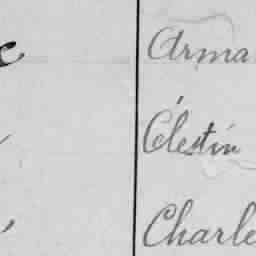 Arma
Célestin
Charle